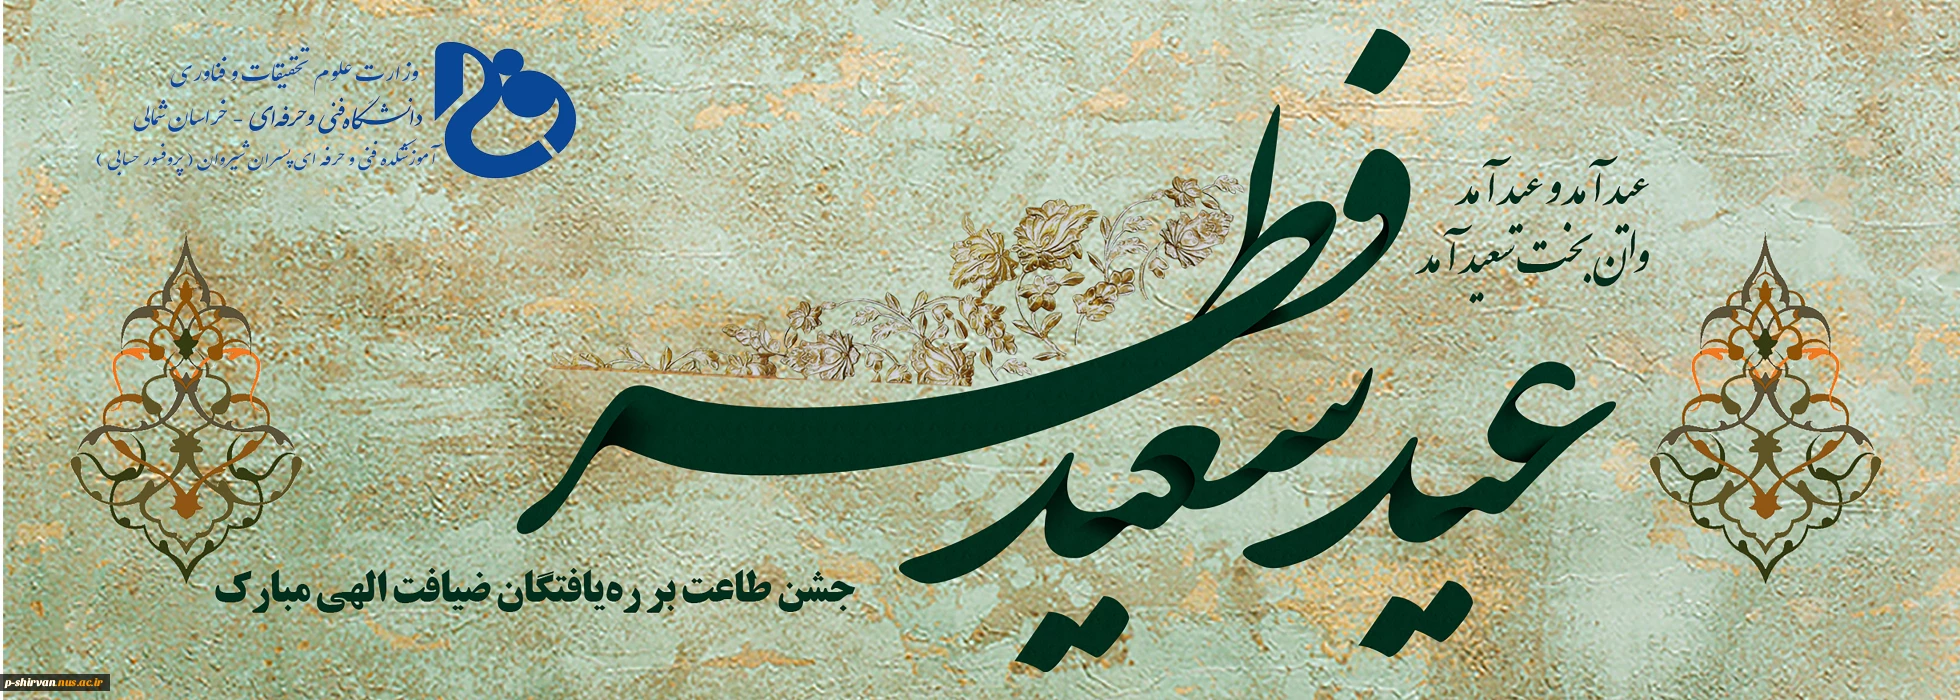 وزارت علوم تحقیقات و فناوری
دانشگاه فنی و حرفه‌ای - خراسان شمالی
آموزشکده فنی و حرفه ای پسران شیروان (پروفسور حسابی)
عید آمد و عید آمد
وان بخت سعید آمد
عید سعید فطر
جشن طاعت بر ره‌یافتگان ضیافت الهی مبارک
p-shirvan.nus.ac.ir